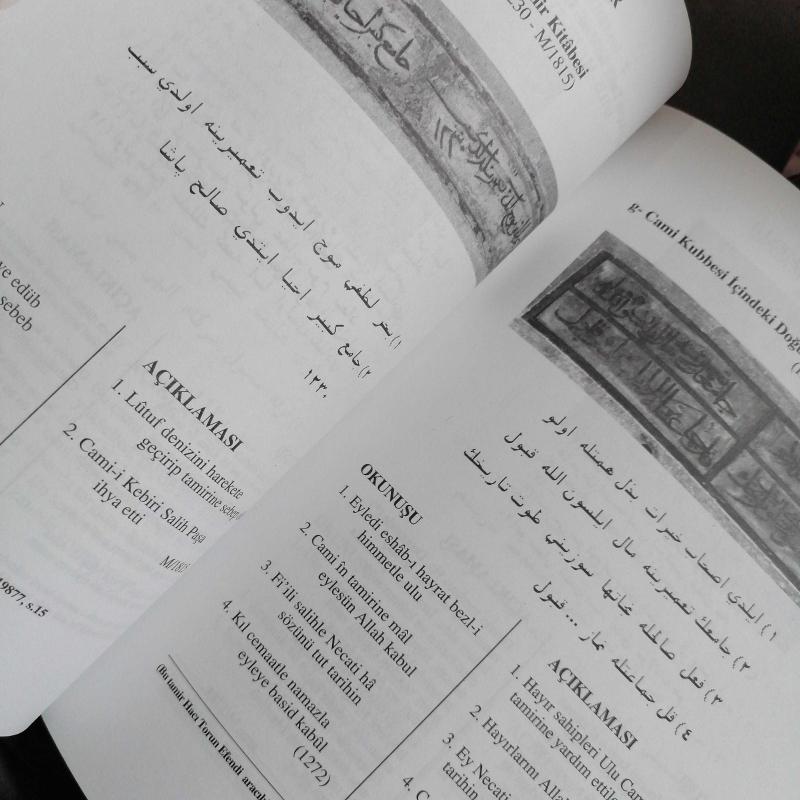 mir Kitâbesi
230 - M/1815)
١) بحر لطفي موج ايدوب تعميرينه اولدي سبب
٢) جامع كبير احيا ايتدي صالح پاشا
١٢٣٠
ve edüb
sebeb
AÇIKLAMASI
1. Lûtuf denizini harekete
geçirip tamirine sebep
2. Cami-i Kebiri Salih Paşa
ihya etti
19877, s.15
g- Cami Kubbesi İçindeki Doğu
١) ايلدي اصحاب خيرات بذل همتله اولو
٢) جامعك تعميرينه مال ايلسون الله قبول
٣) فعل صالحله نجاتها سوزيني طوت تاريخك
٤) قل جماعتله نماز ... قبول
OKUNUŞU
1. Eyledi eshâb-ı hayrat bezl-i
himmetle ulu
2. Cami în tamirine mâl
eylesün Allah kabul
3. Fi’ili salihle Necati hâ
sözünü tut tarihin
4. Kıl cemaatle namazla
eyleye basid kabûl
(1272)
(Bu tamir Hacı Torun Efendi
AÇIKLAMASI
1. Hayır sahipleri Ulu
tamirine yardım
2. Hayırlarını
3. Ey Necati
tarihin
4.